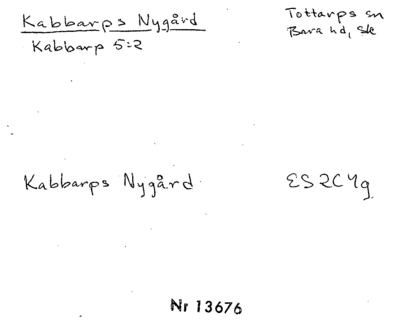 Kabbarps Nygård
Kabbarp 5:2
Tottarps sn
Bara hd, Sk
Kabbarps Nygård
ES 2C 4g
Nr 13676